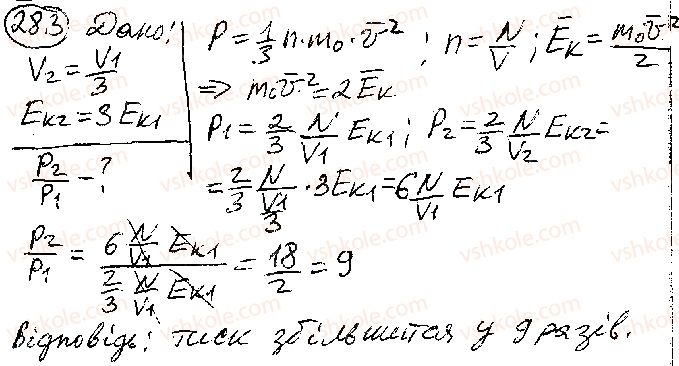 28.3 Дано:
V₂ = V₁/3
Eк₂ = 3Eк₁
P₂/P₁ - ?
P = 1/3 n·m₀·v̄²; n = N/V; Ēк = m₀v̄²/2
=> m₀v̄² = 2Ēк
P₁ = 2/3 N/V₁ Eк₁; P₂ = 2/3 N/V₂ Eк₂ =
= 2/3 N/(V₁/3) · 3Eк₁ = 6 N/V₁ Eк₁
P₂/P₁ = (6 N/V₁ Eк₁)/(2/3 N/V₁ Eк₁) = 18/2 = 9
Відповідь: тиск збільшится у 9 разів.
vshkole.com